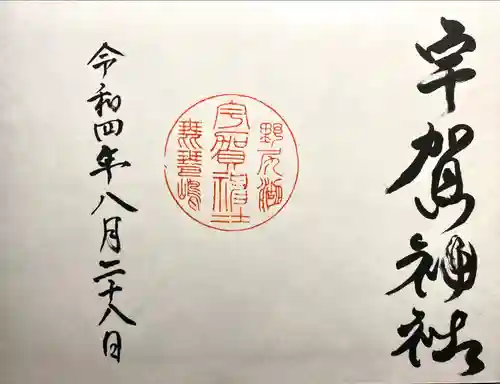 宇賀神社
野尻湖
宇賀神社
琵琶嶋
令和四年八月二十八日